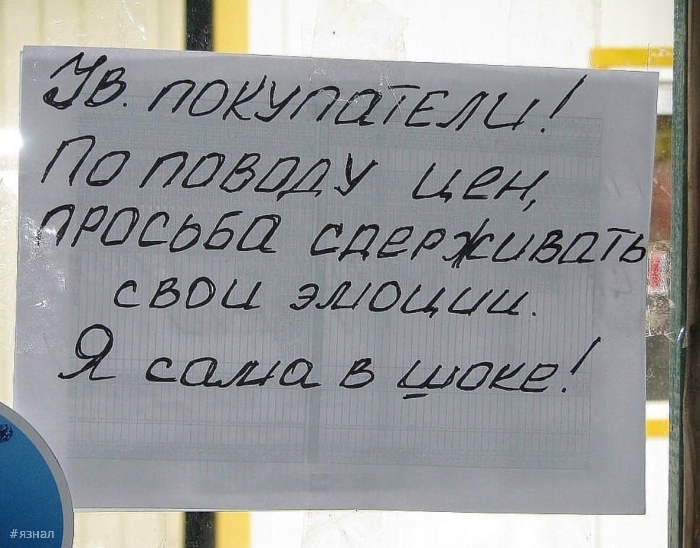 Ув. покупатели!
По поводу цен,
просьба сдерживать
свои эмоции.
Я сама в шоке!
#язнал